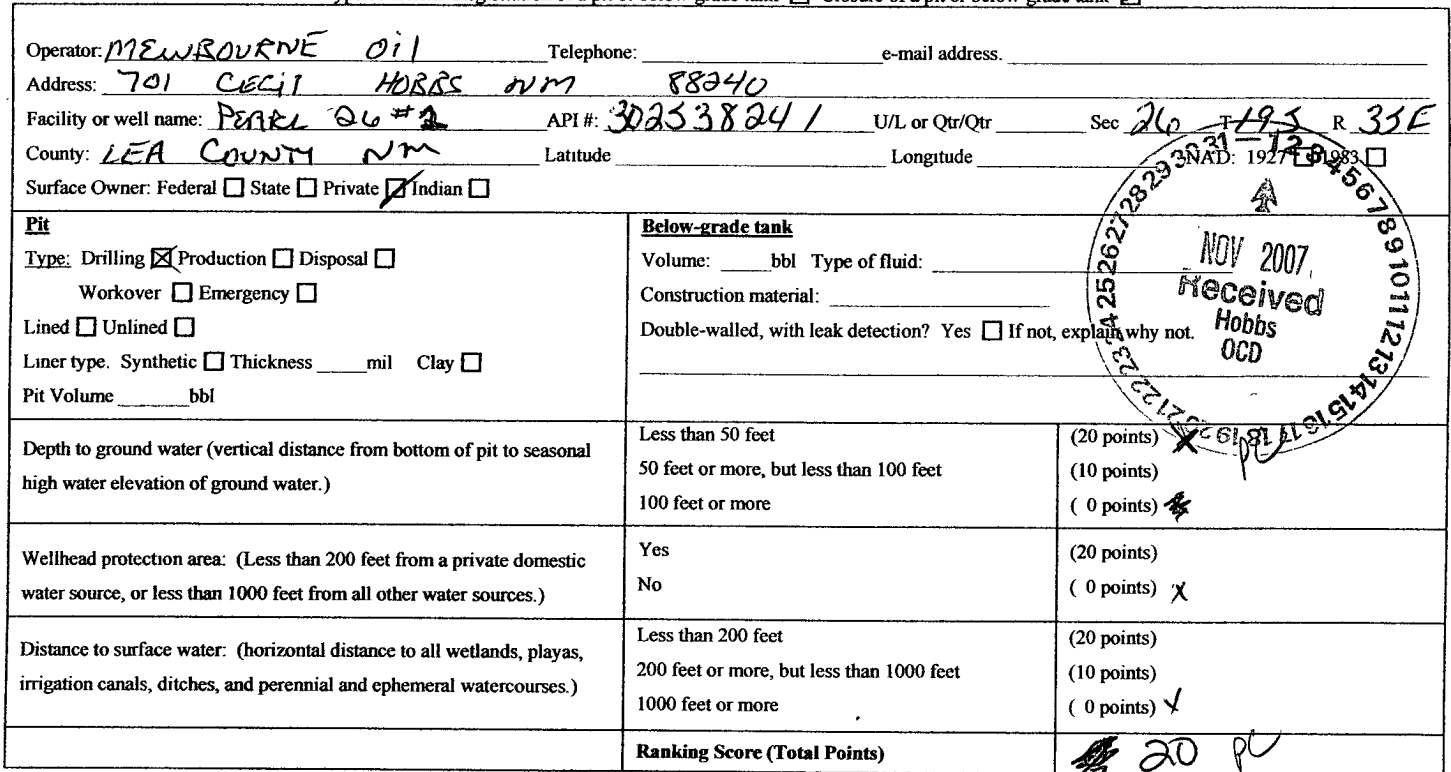 Operator: MEWBOURNE Oil Telephone: e-mail address.
Address: 701 CECil HOBBS NM 88240
Facility or well name: PEARL 26 #2 API #: 302538241 U/L or Qtr/Qtr Sec 26 T 19S R 35E
County: LEA COUNTY NM Latitude Longitude NAD: 1927 ☐ 1983 ☐
Surface Owner: Federal ☐ State ☐ Private ☑ Indian ☐
Pit
Type: Drilling ☒ Production ☐ Disposal ☐
Workover ☐ Emergency ☐
Lined ☐ Unlined ☐
Liner type. Synthetic ☐ Thickness mil Clay ☐
Pit Volume bbl
Below-grade tank
Volume: bbl Type of fluid:
Construction material:
Double-walled, with leak detection? Yes ☐ If not, explain why not.
NOV 2007
Received
Hobbs
OCD
Depth to ground water (vertical distance from bottom of pit to seasonal
high water elevation of ground water.)
Less than 50 feet (20 points) X PC
50 feet or more, but less than 100 feet (10 points)
100 feet or more ( 0 points)
Wellhead protection area: (Less than 200 feet from a private domestic
water source, or less than 1000 feet from all other water sources.)
Yes (20 points)
No ( 0 points) X
Distance to surface water: (horizontal distance to all wetlands, playas,
irrigation canals, ditches, and perennial and ephemeral watercourses.)
Less than 200 feet (20 points)
200 feet or more, but less than 1000 feet (10 points)
1000 feet or more ( 0 points) X
Ranking Score (Total Points) 20 PC